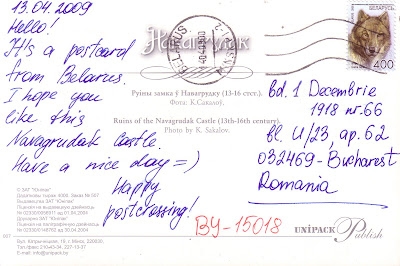 13.04.2009
Hello!
It's a postcard
from Belarus.
I hope you
like this
Navagrudak Castle.
Have a nice day =)
Happy
postcrossing!
Навагрудак
Руіны замка ў Навагрудку (13-16 стст.).
Фота: К.Сакалоў.
Ruins of the Navagrudak Castle (13th-16th century).
Photo by K. Sakalov.
БЕЛАРУСЬ
400
bd. 1 Decembrie
1918 nr. 66
bl. U/23, ap. 62
032469-Bucharest
Romania
BY-15018
UNIPACK Publish
© ЗАТ "Юніпак"
Выдавецтва ЗАТ "Юніпак"
Друкарня ЗАТ "Юніпак"
E-mail: info@unipack.by